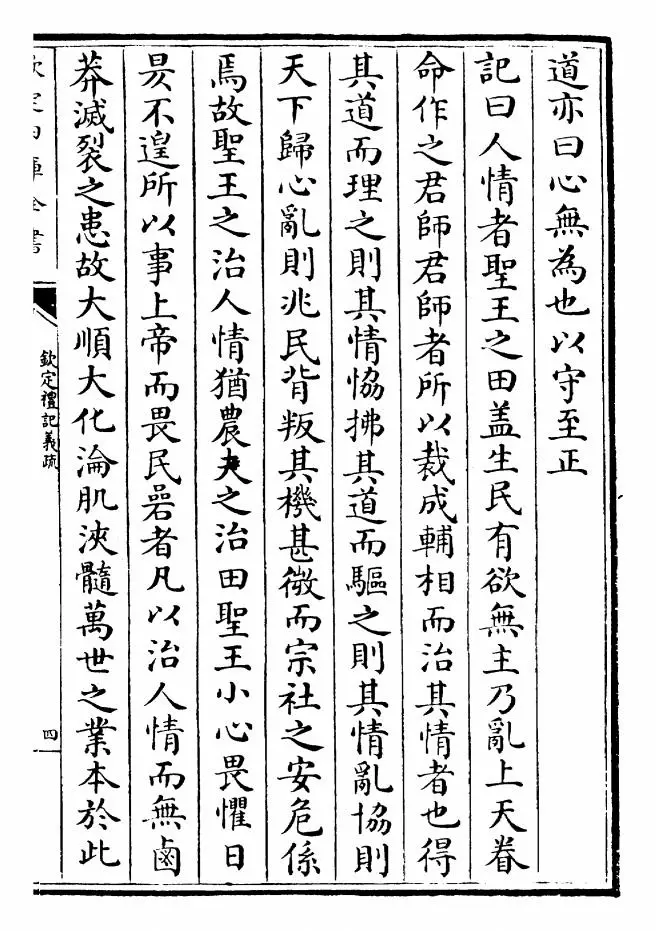 道亦曰心無為也以守至正
記曰人情者聖王之田盖生民有欲無主乃亂上天眷
命作之君師君師者所以裁成輔相而治其情者也得
其道而理之則其情協拂其道而驅之則其情亂協則
天下歸心亂則兆民背叛其機甚微而宗社之安危係
焉故聖王之治人情猶農夫之治田聖王小心畏懼日
昃不遑所以事上帝而畏民碞者凡以治人情而無鹵
莽滅裂之患故大順大化淪肌浹髓萬世之業本於此
欽定四庫全書
欽定禮記義疏
四